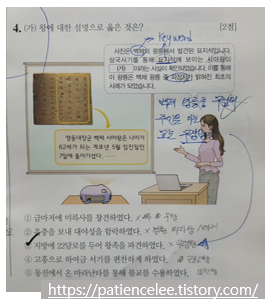 4. (가) 왕에 대한 설명으로 옳은 것은? [2점]
keyword
사진은 백제의 왕릉에서 발견된 묘지석입니다.
삼국사기를 통해 묘지석에 보이는 사마왕이
(가) 이라는 사실이 확인되었습니다. 이를 통해
이 왕릉은 백제 왕릉 중 피장자가 밝혀진 최초의
사례가 되었습니다.
백제 왕릉 중 유일
주인을 아는
영동대장군 백제 사마왕은 나이가
62세가 되는 계묘년 5월 임진일인
7일에 돌아가셨다. ……
① 금마저에 미륵사를 창건하였다. × 무왕
② 윤충을 보내 대야성을 함락하였다. ×
③ 지방에 22담로를 두어 왕족을 파견하였다.
④ 고흥으로 하여금 서기를 편찬하게 하였다.
⑤ 동진에서 온 마라난타를 통해 불교를 수용하였다.
https://patiencelee.tistory.com/